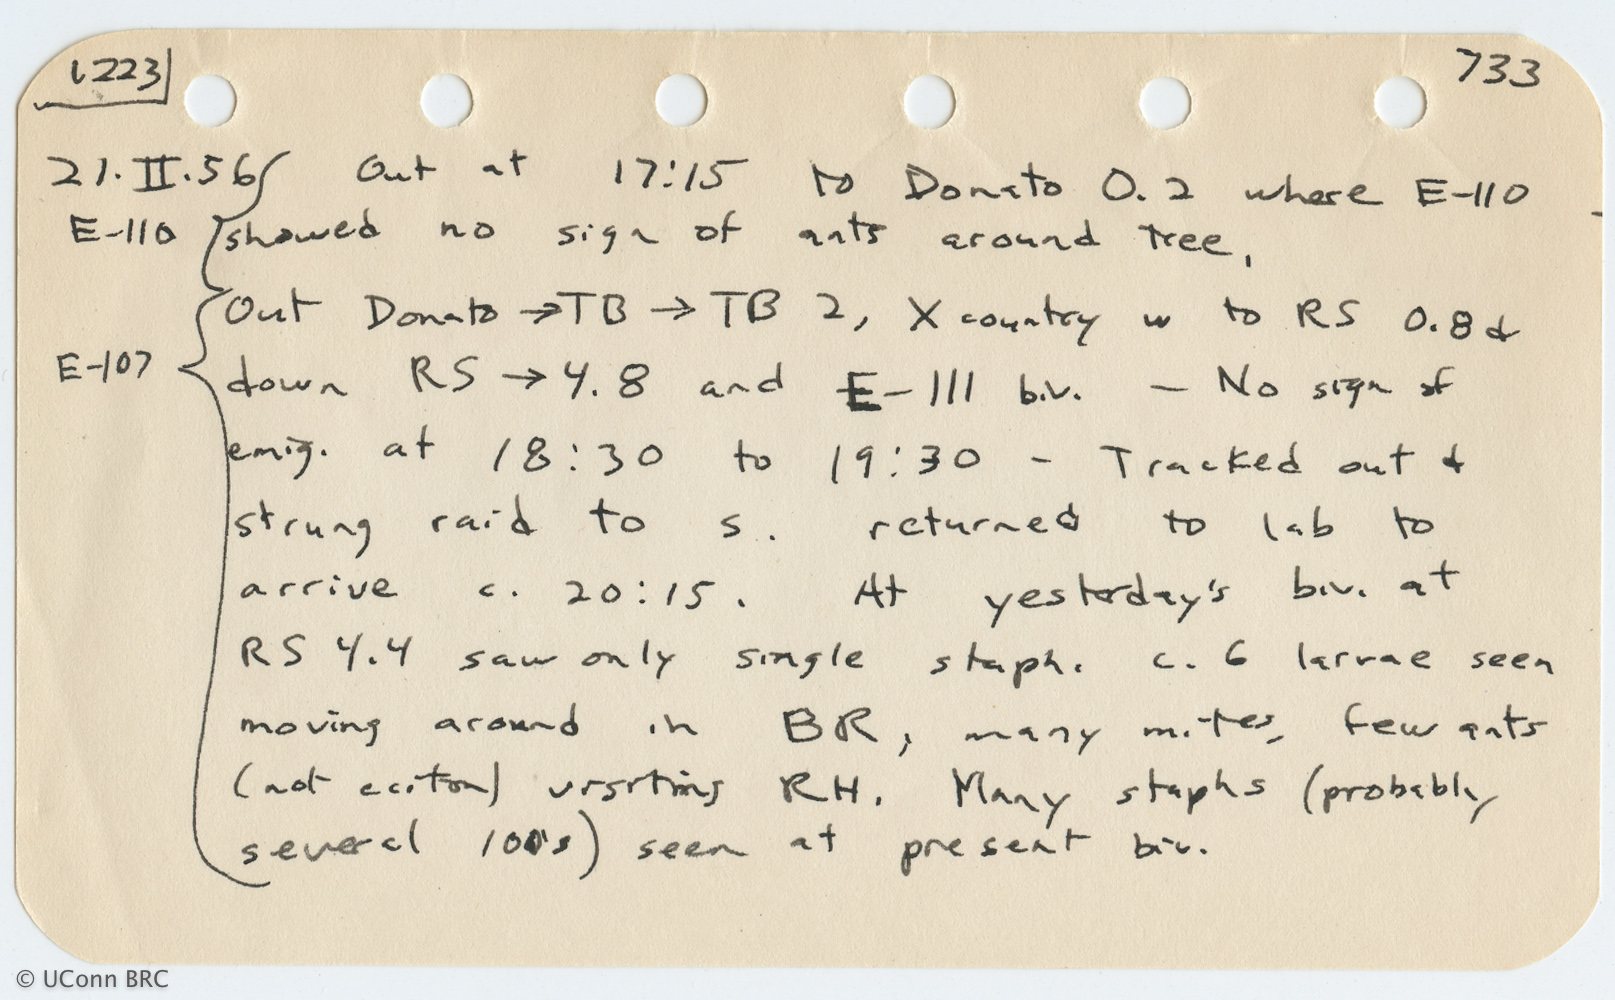 1223 733
21.II.56 Out at 17:15 to Donato 0.2 where E-110
E-110 showed no sign of ants around tree.
Out Donato → TB → TB 2, X country w to RS 0.8 &
E-107 down RS → 4.8 and E-111 biv. — No sign of
emig. at 18:30 to 19:30 - Tracked out &
strung raid to s. returned to lab to
arrive c. 20:15. At yesterday's biv. at
RS 4.4 saw only single staph. c. 6 larvae seen
moving around in BR, many mites, few ants
(not eciton) visiting RH. Many staphs (probably
several 100's) seen at present biv.
© UConn BRC